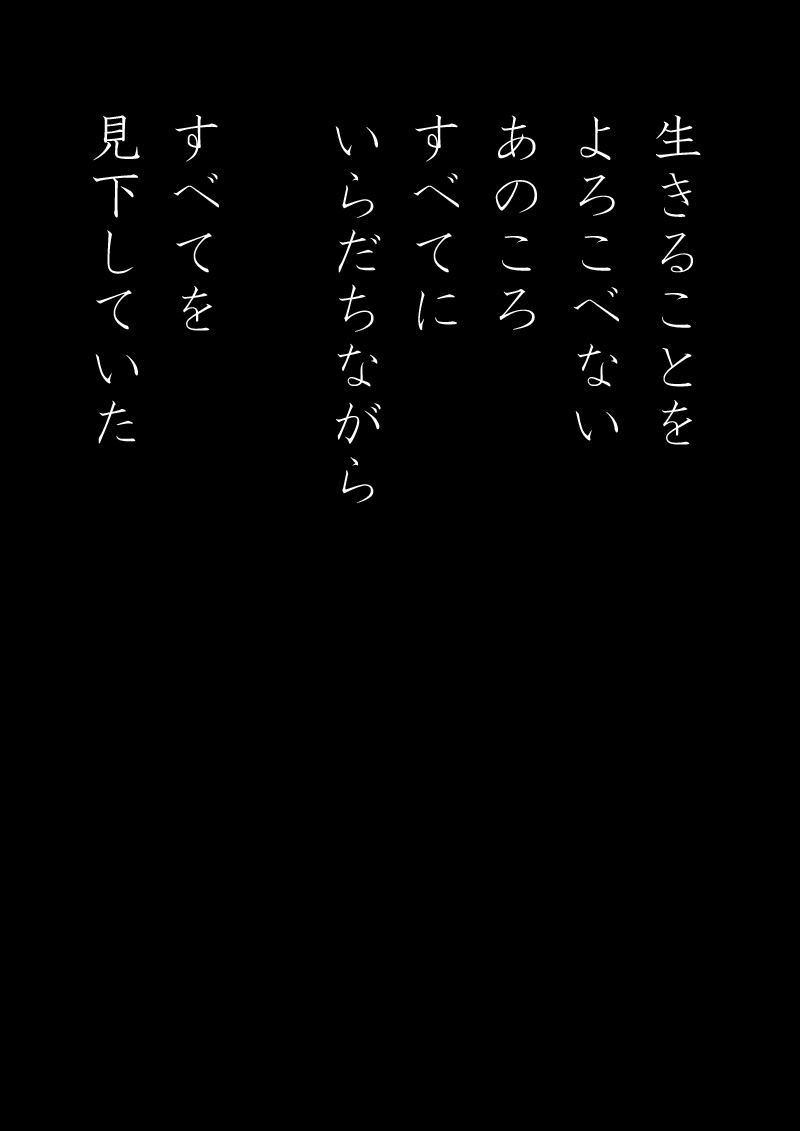 生きることを
よろこべない
あのころ
すべてに
いらだちながら
すべてを
見下していた